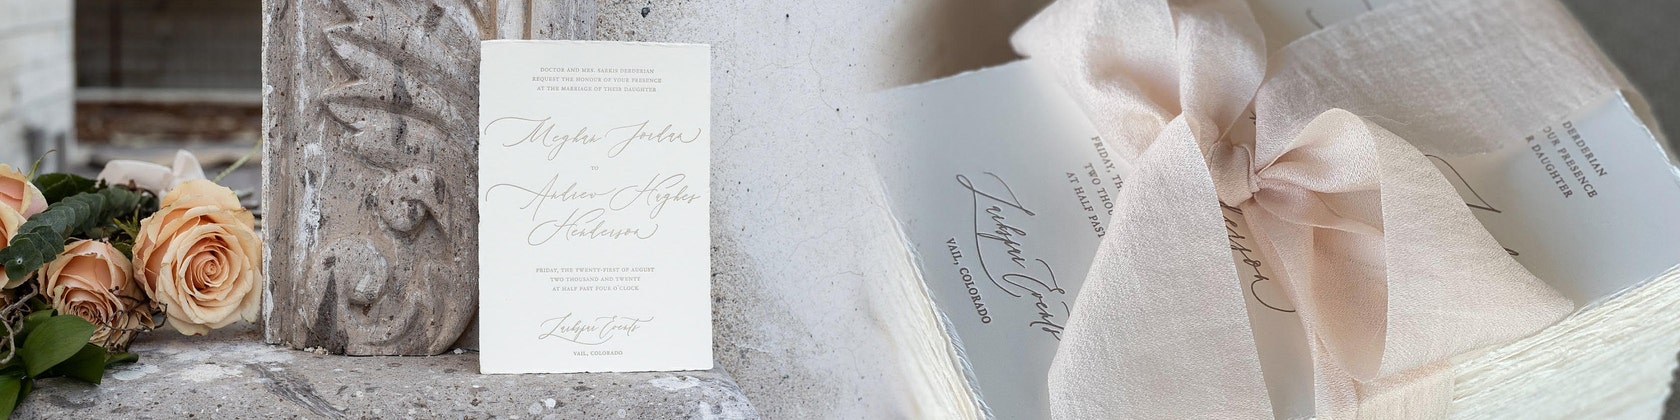 DOCTOR AND MRS. SARKIS DERDERIAN
REQUEST THE HONOUR OF YOUR PRESENCE
AT THE MARRIAGE OF THEIR DAUGHTER
Meghan Jordan
TO
Andrew Hughes
Henderson
FRIDAY, THE TWENTY-FIRST OF AUGUST
TWO THOUSAND AND TWENTY
AT HALF PAST FOUR O'CLOCK
Larkspur Events
VAIL, COLORADO
DERDERIAN
OUR PRESENCE
R DAUGHTER
FRIDAY, TH
TWO THOU
AT HALF PAST
Larkspur Events
VAIL, COLORADO